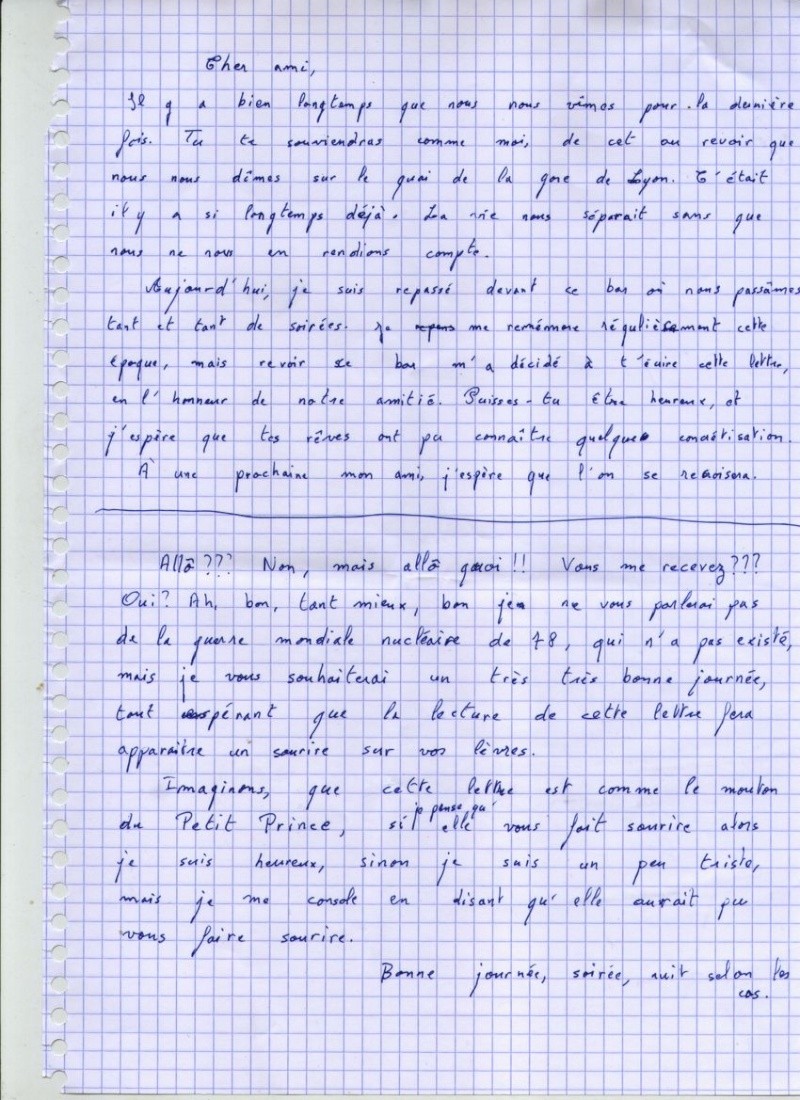 Cher ami,
Il y a bien longtemps que nous nous vîmes pour la dernière
fois. Tu te souviendras comme moi, de cet au revoir que
nous nous dîmes sur le quai de la gare de Lyon. C'était
il y a si longtemps déjà. La vie nous séparait sans que
nous ne nous en rendions compte.
Aujourd'hui, je suis repassé devant ce bar où nous passâmes
tant et tant de soirées. Je me remémore régulièrement cette
époque, mais revoir ce bar m'a décidé à t'écrire cette lettre,
en l'honneur de notre amitié. Puisses-tu être heureux, et
j'espère que tes rêves ont pu connaître quelque concrétisation.
À une prochaine mon ami, j'espère que l'on se revoisera.
Allô??? Non, mais allô quoi!! Vous me recevez???
Oui? Ah, bon, tant mieux, bon je ne vous parlerai pas
de la guerre mondiale nucléaire de 78, qui n'a pas existé,
mais je vous souhaiterai un très très bonne journée,
tout espérant que la lecture de cette lettre fera
apparaître un sourire sur vos lèvres.
Imaginons, que cette lettre est comme le mouton
du Petit Prince, si je pense qu'elle vous fait sourire alors
je suis heureux, sinon je suis un peu triste,
mais je me console en disant qu'elle aurait pu
vous faire sourire.
Bonne journée, soirée, nuit selon les
cas.